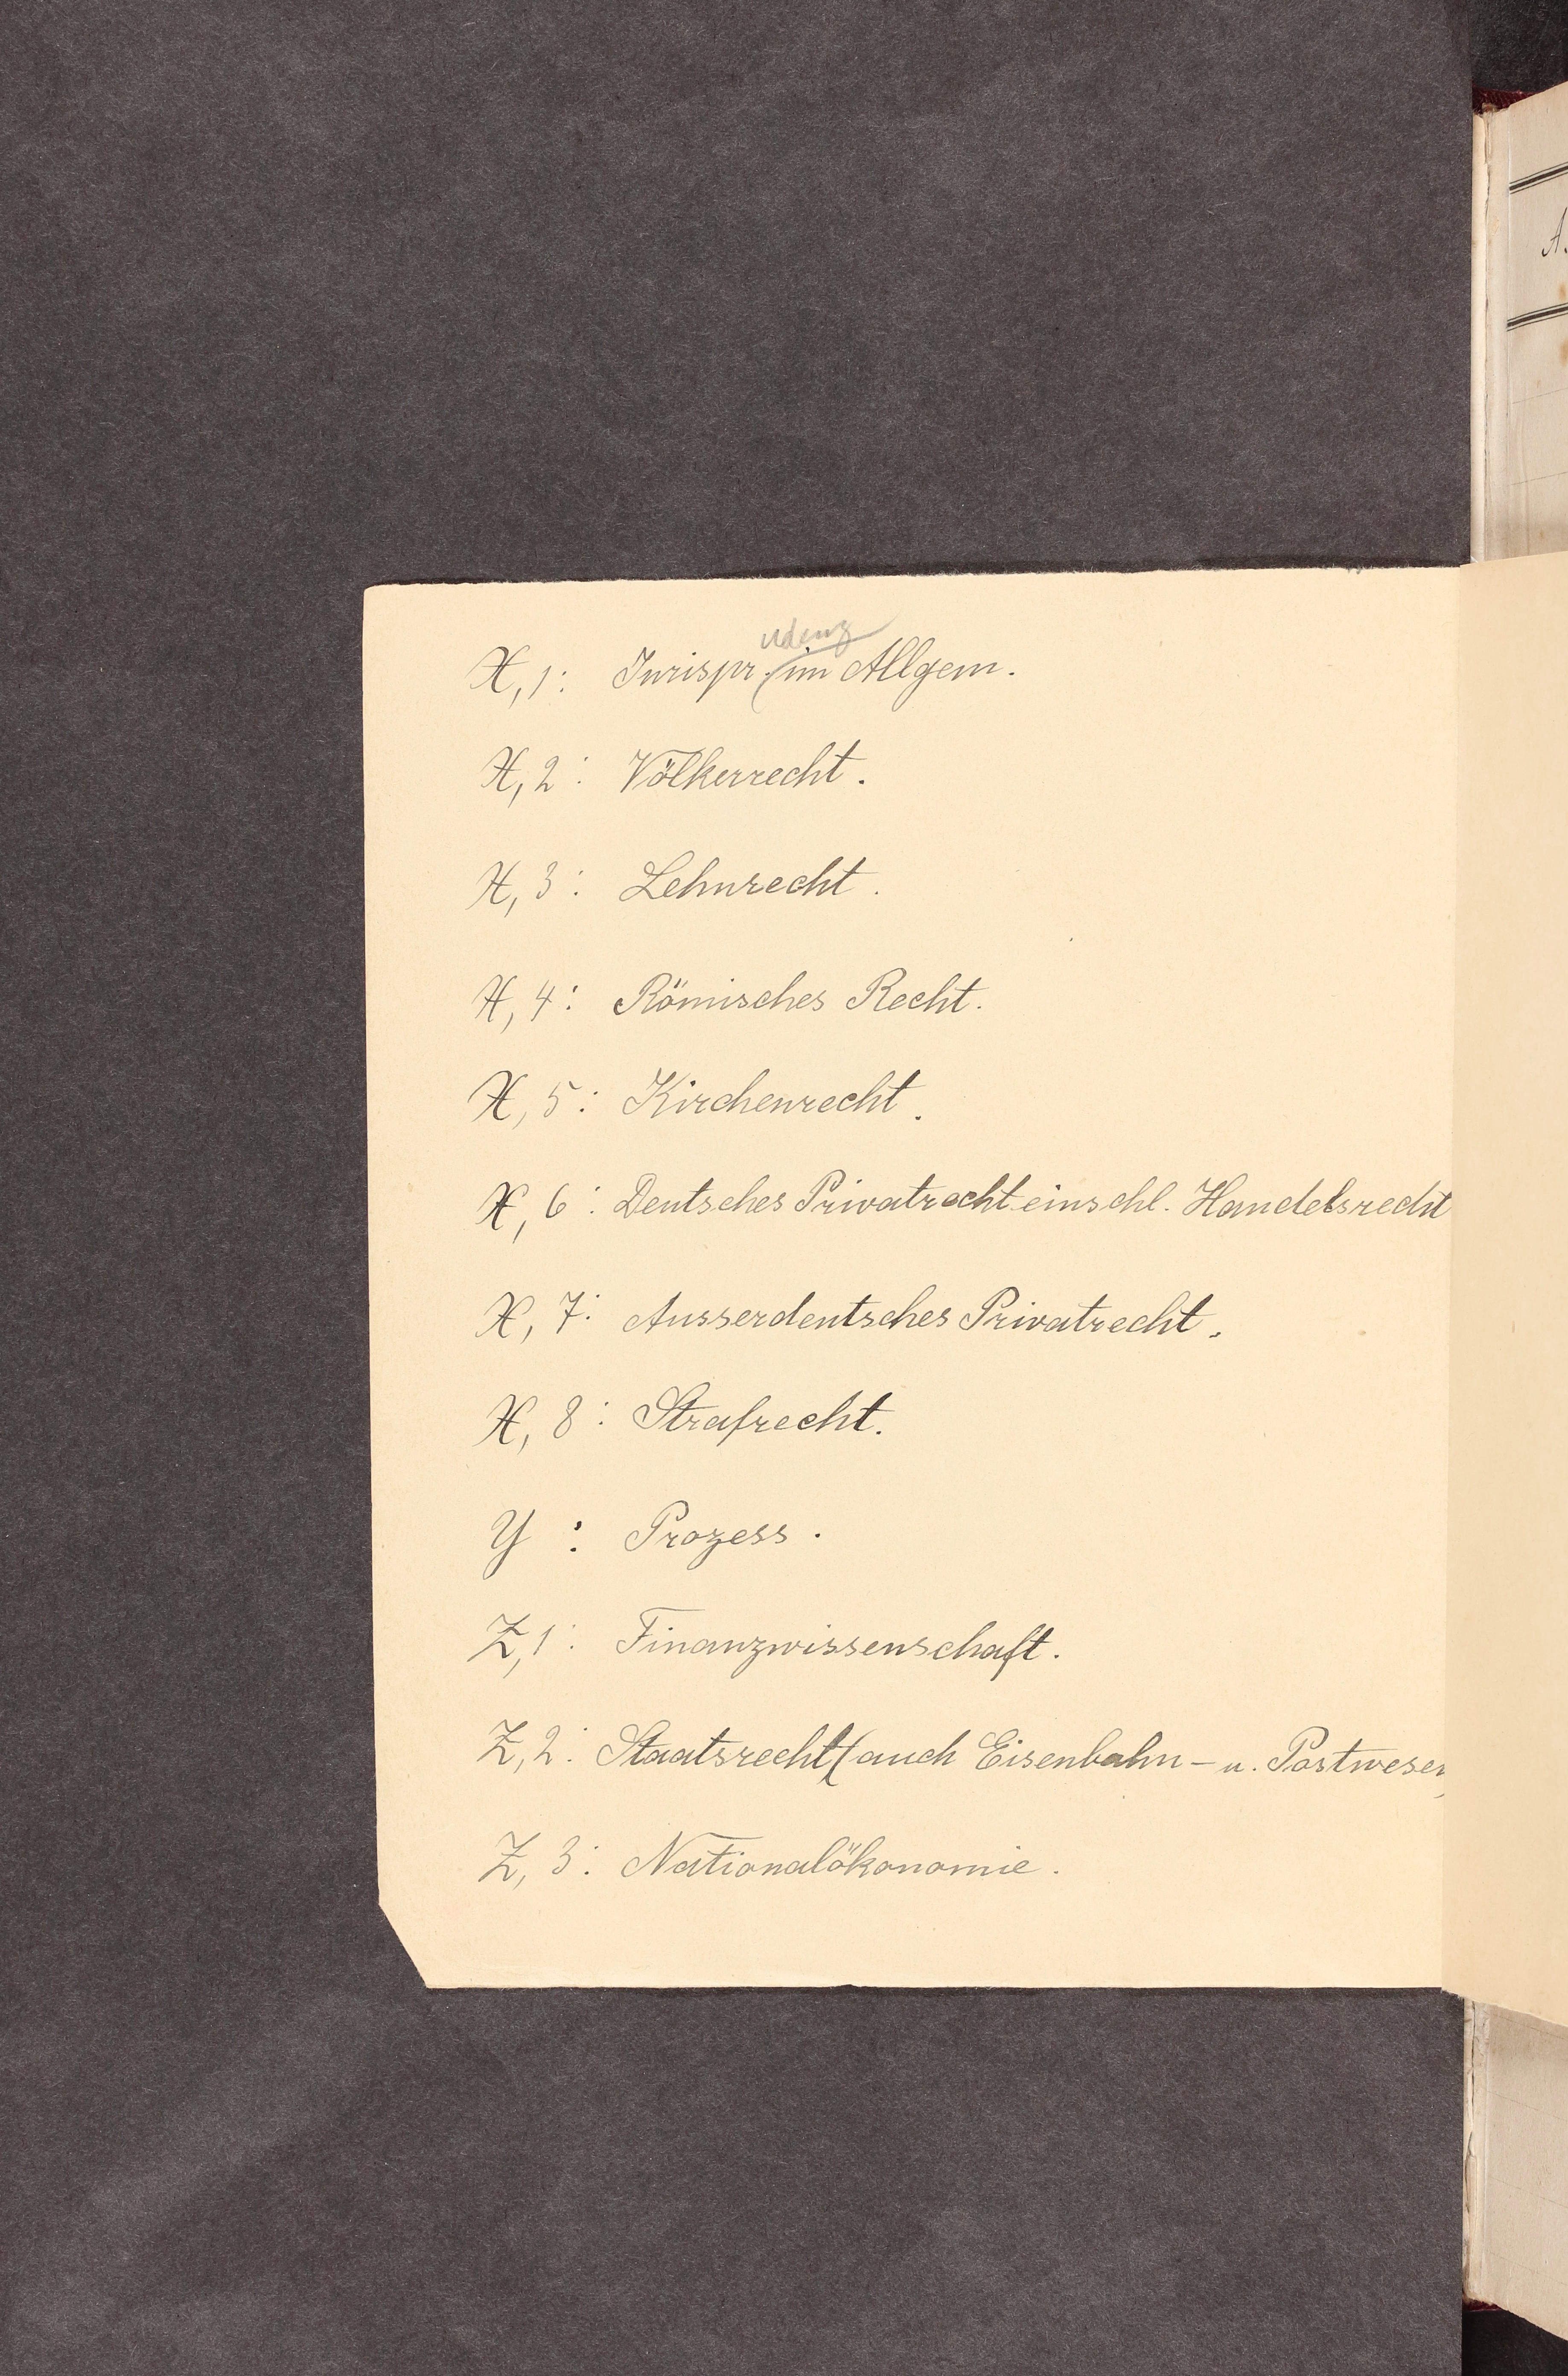 udenz
X, 1: Jurispr. im Allgem.
X, 2: Völkerrecht.
X, 3: Lehnrecht.
X, 4: Römisches Recht.
X, 5: Kirchenrecht.
X, 6: Deutsches Privatrecht einschl. Handelsrecht
X, 7: Ausserdeutsches Privatrecht.
X, 8: Strafrecht.
Y : Prozess.
Z, 1: Finanzwissenschaft.
Z, 2: Staatsrecht (auch Eisenbahn- u. Postwesen
Z, 3: Nationalökonomie.